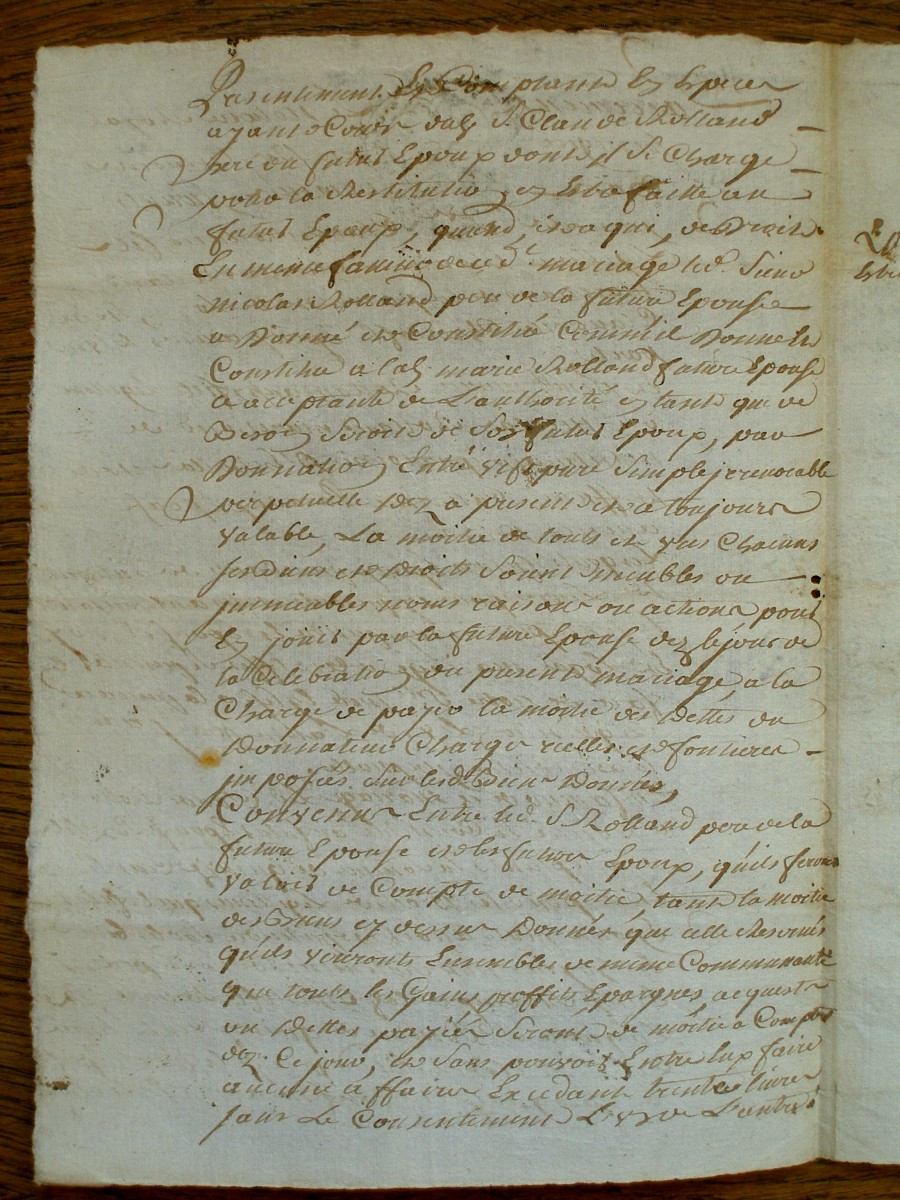 Presentement Et Comptant En Especes
ayant Cours audt Sr Claude Rolland
pere du futur Epoux dont il Se Charge
pour la Restitution En Estre faitte au
futur Epoux, quand, et a qui, de Droit.
En meme faveur de ced. mariage led. Sieur
nicolas Rolland pere de la future Epouse
a Donné et Constitué Comme il Donne et
Constitue a lad. marie Rolland future Epouse
ce acceptante de L'authorité En tant que de
Besoin Seroit de Son futur Epoux, par
Donnation Entre vifs pure Simple jrrevocable
perpetuelle dez a present et a toujours
valable, La moitie de touts et vns Chacuns
ses Biens et Droits Soient meubles ou
jmmeubles noms raisons ou actions pour
En jouir par la future Epouse dez le jour de
la Celebration du present mariage, a la
Charge de payer la moitié des Dettes du
Donnateur Charges reelles et foncieres
jmposées sur lesd. Biens Donnés,
Convenu Entre led. Sr Rolland pere de la
future Epouse et les futurs Epoux, qu'ils feront
valoir de Compte de moitie, tant la moitie
des Biens cy dessus Donnés, que celle Reservée
qu'ils vivronts Ensembles de meme Communauté
que touts les Gains proffits, Epargnes, acquests
ou Dettes payées Seront de moitié a Compter
dez Ce jour, et Sans pouvoir Entre Eux faire
aucune affaire Excedant trente Livres
sans Le Consentement L'vn de L'autre